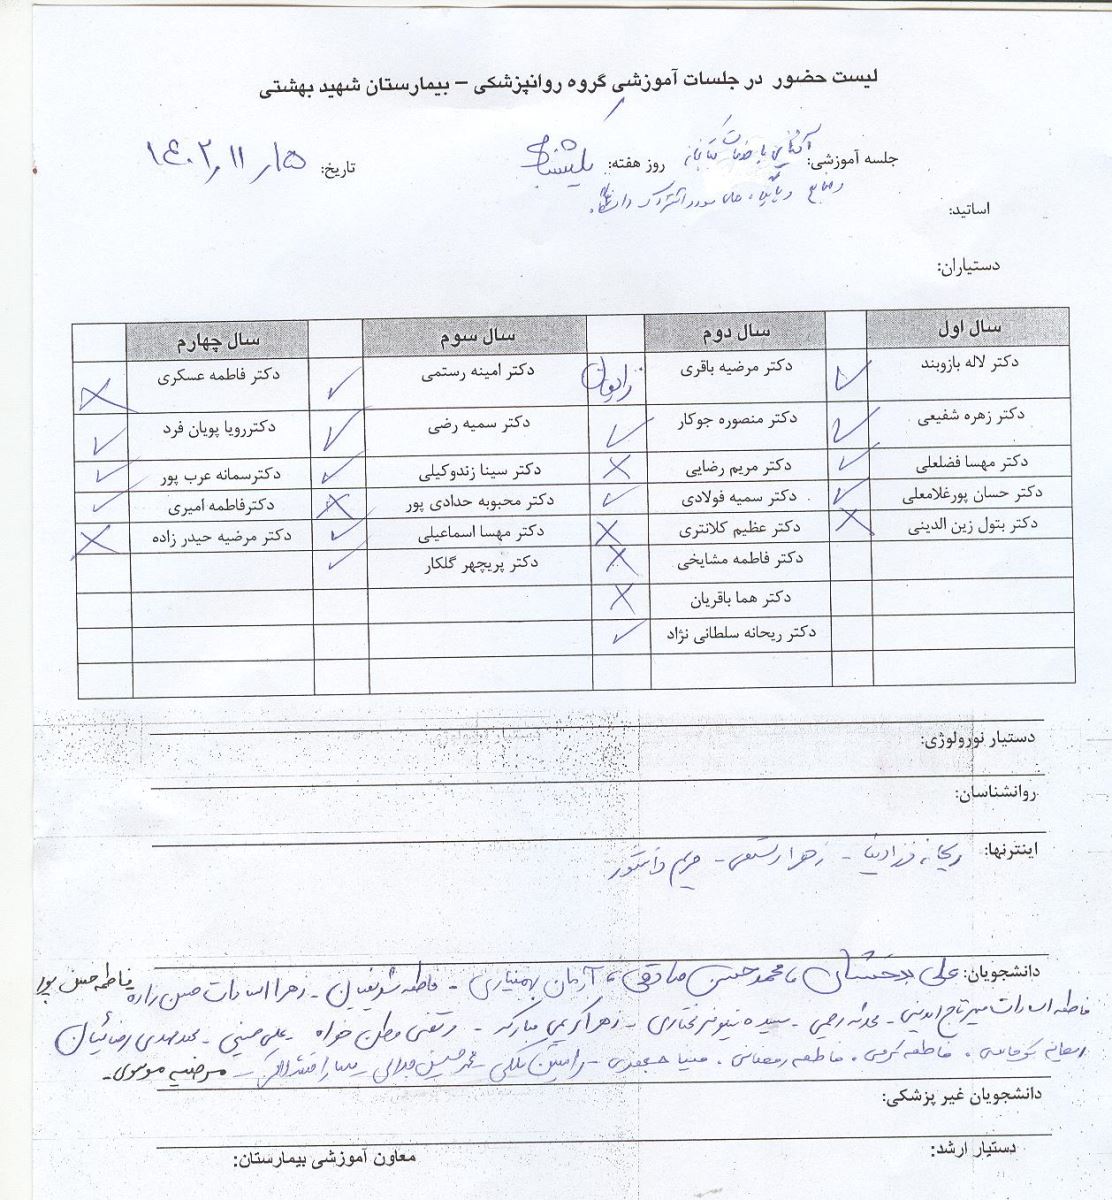 لیست حضور در جلسات آموزشی گروه روانپزشکی – بیمارستان شهید بهشتی
جلسه آموزشی: آشنایی با خدمات کتابخانه روز هفته: یکشنبه تاریخ: ۱۴۰۲,۱۱,۱۵
و منابع و پایگاه های مورد اشتراک دانشگاه
اساتید:
دستیاران:
سال اول سال دوم سال سوم سال چهارم
دکتر لاله بازوبند ✓ دکتر مرضیه باقری زایمان دکتر امینه رستمی ✓ دکتر فاطمه عسکری ✗
دکتر زهره شفیعی ✓ دکتر منصوره جوکار ✓ دکتر سمیه رضی ✓ دکتررویا پویان فرد ✓
دکتر مهسا فضلعلی ✓ دکتر مریم رضایی ✗ دکتر سینا زندوکیلی ✓ دکترسمانه عرب پور ✓
دکتر حسان پورغلامعلی ✓ دکتر سمیه فولادی ✓ دکتر محبوبه حدادی پور ✗ دکترفاطمه امیری ✓
دکتر بتول زین الدینی ✗ دکتر عظیم کلانتری ✗ دکتر مهسا اسماعیلی ✓ دکتر مرضیه حیدر زاده ✗
دکتر فاطمه مشایخی ✗ دکتر پریچهر گلکار ✓
دکتر هما باقریان ✗
دکتر ریحانه سلطانی نژاد ✓
دستیار نورولوژی:
روانشناسان:
اینترنها: ریحانه فرادنیا - زهرا رستمی - مریم
دانشجویان: علی بدخشان، محمدحسن صادقی، آرمان بهمنیاری - فاطمه شریفیان - زهرا السادات حسن زاده فاطمه حسن پور
فاطمه السادات میرتاج الدینی - محدثه رحیمی - سیده نیلوفر - زهرا کریمی مبارکه - مرتضی وطن خواه - علی حسینی - محمدمهدی رضائیان
فاطمه کرمی، فاطمه رمضانی، جعفری - رامتین ملکی - محمدحسین - مرضیه موسوی.
دانشجویان غیر پزشکی:
دستیار ارشد: معاون آموزشی بیمارستان: